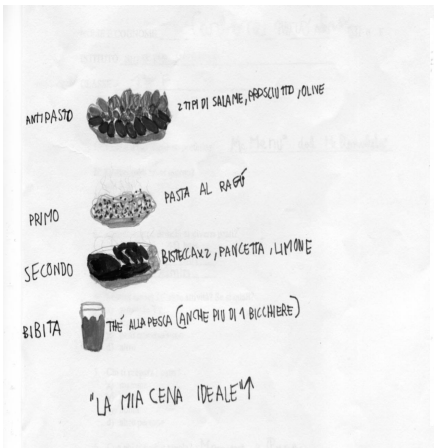 ANTIPASTO 2 TIPI DI SALAME, PROSCIUTTO, OLIVE
PRIMO PASTA AL RAGÚ
SECONDO BISTECCA X2, PANCETTA, LIMONE
BIBITA THÉ ALLA PESCA (ANCHE PIU DI 1 BICCHIERE)
"LA MIA CENA IDEALE"↑